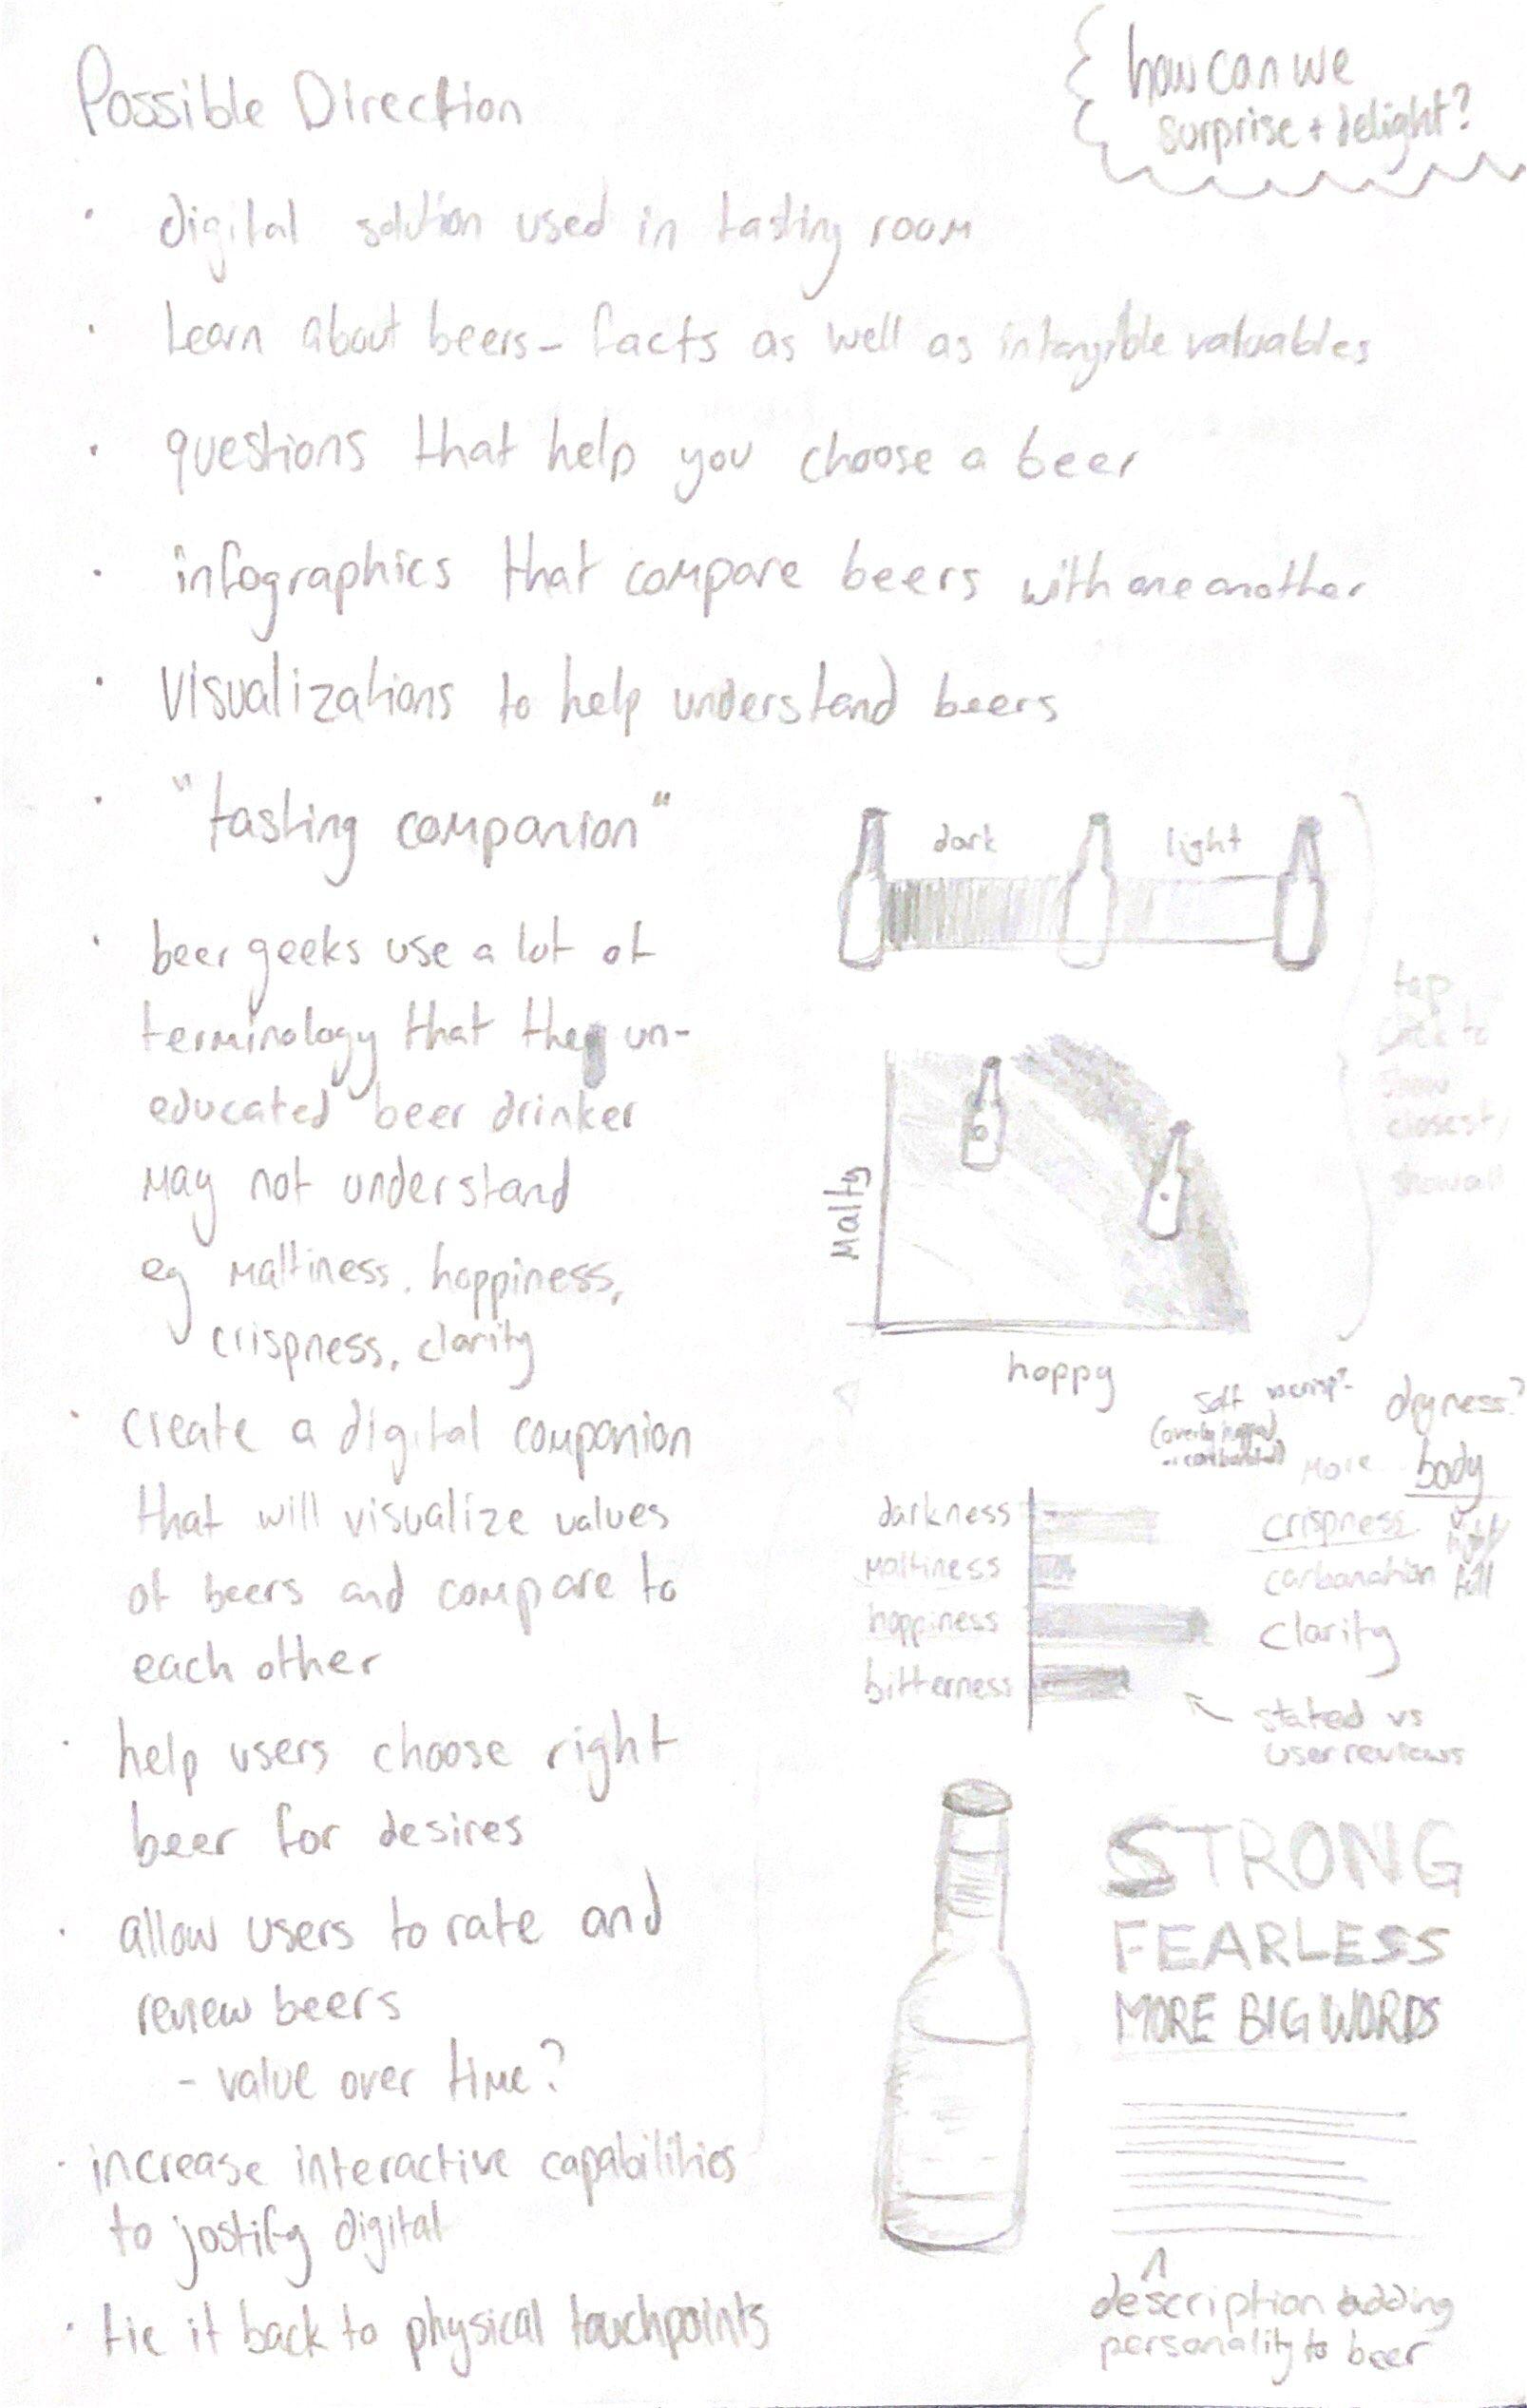 Possible Direction
how can we
surprise + delight?
· digital solution used in tasting room
· learn about beers - facts as well as intangible valuables
· questions that help you choose a beer
· infographics that compare beers with one another
· visualizations to help understand beers
· "tasting companion"
· beer geeks use a lot of
terminology that the un-
educated beer drinker
may not understand
eg maltiness, hoppiness,
crispness, clarity
· create a digital companion
that will visualize values
of beers and compare to
each other
· help users choose right
beer for desires
· allow users to rate and
review beers
- value over time?
· increase interactive capabilities
to justify digital
· tie it back to physical touchpoints
dark light
tap
to
show
closest,
show all
Malty
hoppy
soft vs crisp?
dryness?
more body
darkness
maltiness
hoppiness
bitterness
crispness
carbonation
clarity
light/
full
stated vs
user reviews
STRONG
FEARLESS
MORE BIG WORDS
description adding
personality to beer